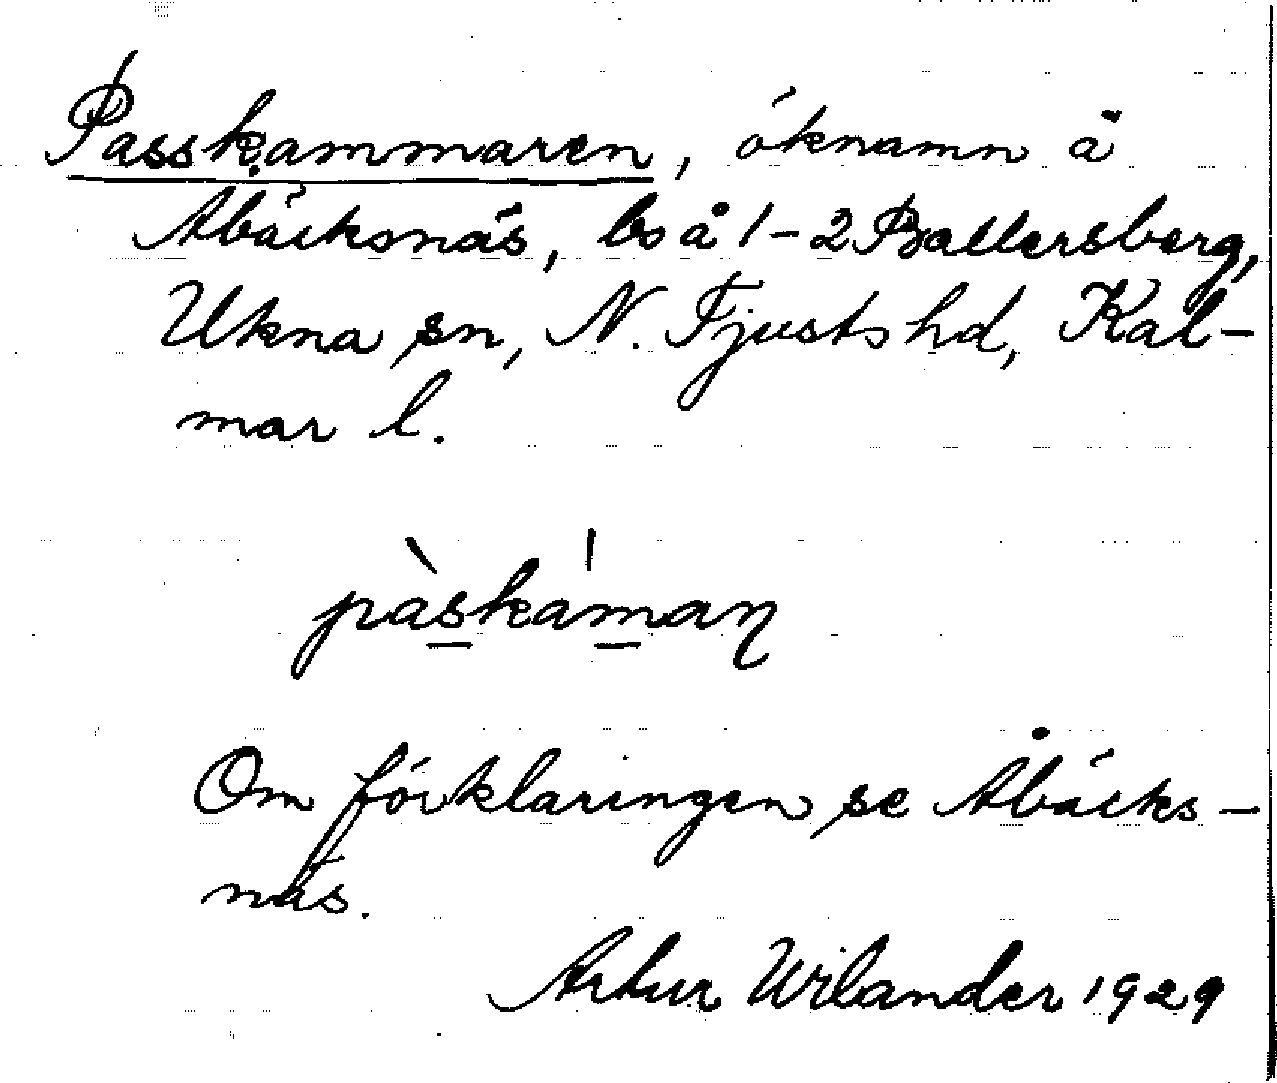 Passkammaren, öknamn å
Åbäcksnäs, bs å 1-2 Ballersberg,
Ukna sn, N. Tjusts hd, Kal-
mar l.
pàskámaŋ
Om förklaringen se Åbäcks-
näs.
Artur Wilander 1929